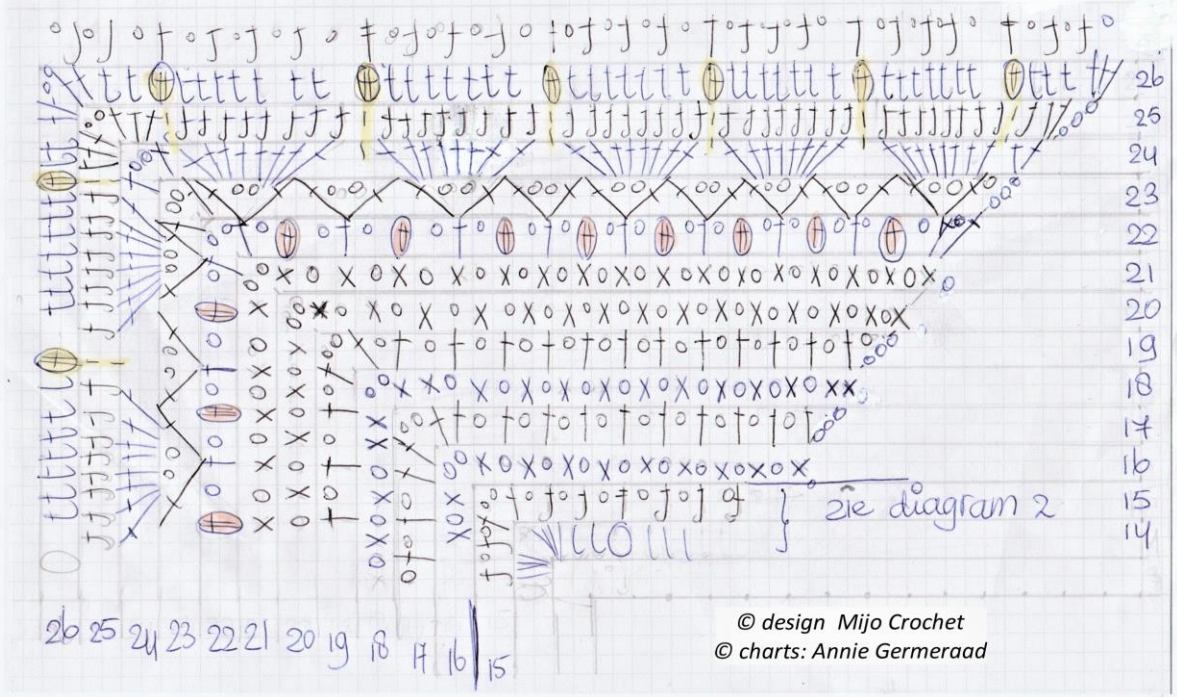 26
25
24
23
22
21
20
19
18
17
16
15
14
zie diagram 2
26 25 24 23 22 21 20 19 18 17 16 15
© design Mijo Crochet
© charts: Annie Germeraad